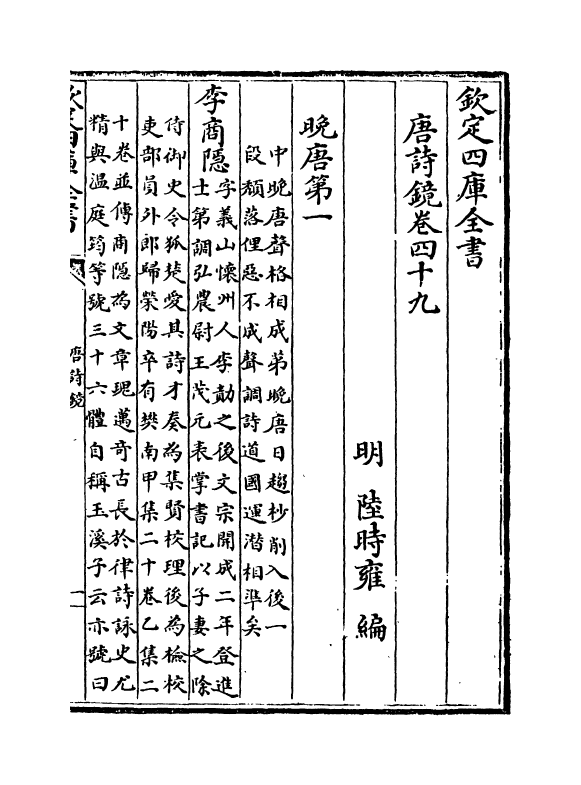 欽定四庫全書
唐詩鏡卷四十九
明 陸時雍 編
晚唐第一
中晚唐聲格相成第晚唐日趨杪削入後一
段頽落俚惡不成聲調詩道國運潛相準矣
李商隱
字義山懷州人李勣之後文宗開成二年登進
士第調弘農尉王茂元表掌書記以子妻之除
侍御史令狐楚愛其詩才奏為集賢校理後為檢校
吏部員外郎歸滎陽卒有樊南甲集二十卷乙集二
十卷並傳商隱為文章瑰邁奇古長於律詩詠史尤
精與温庭筠等號三十六體自稱玉溪子云亦號曰
唐詩鏡
一